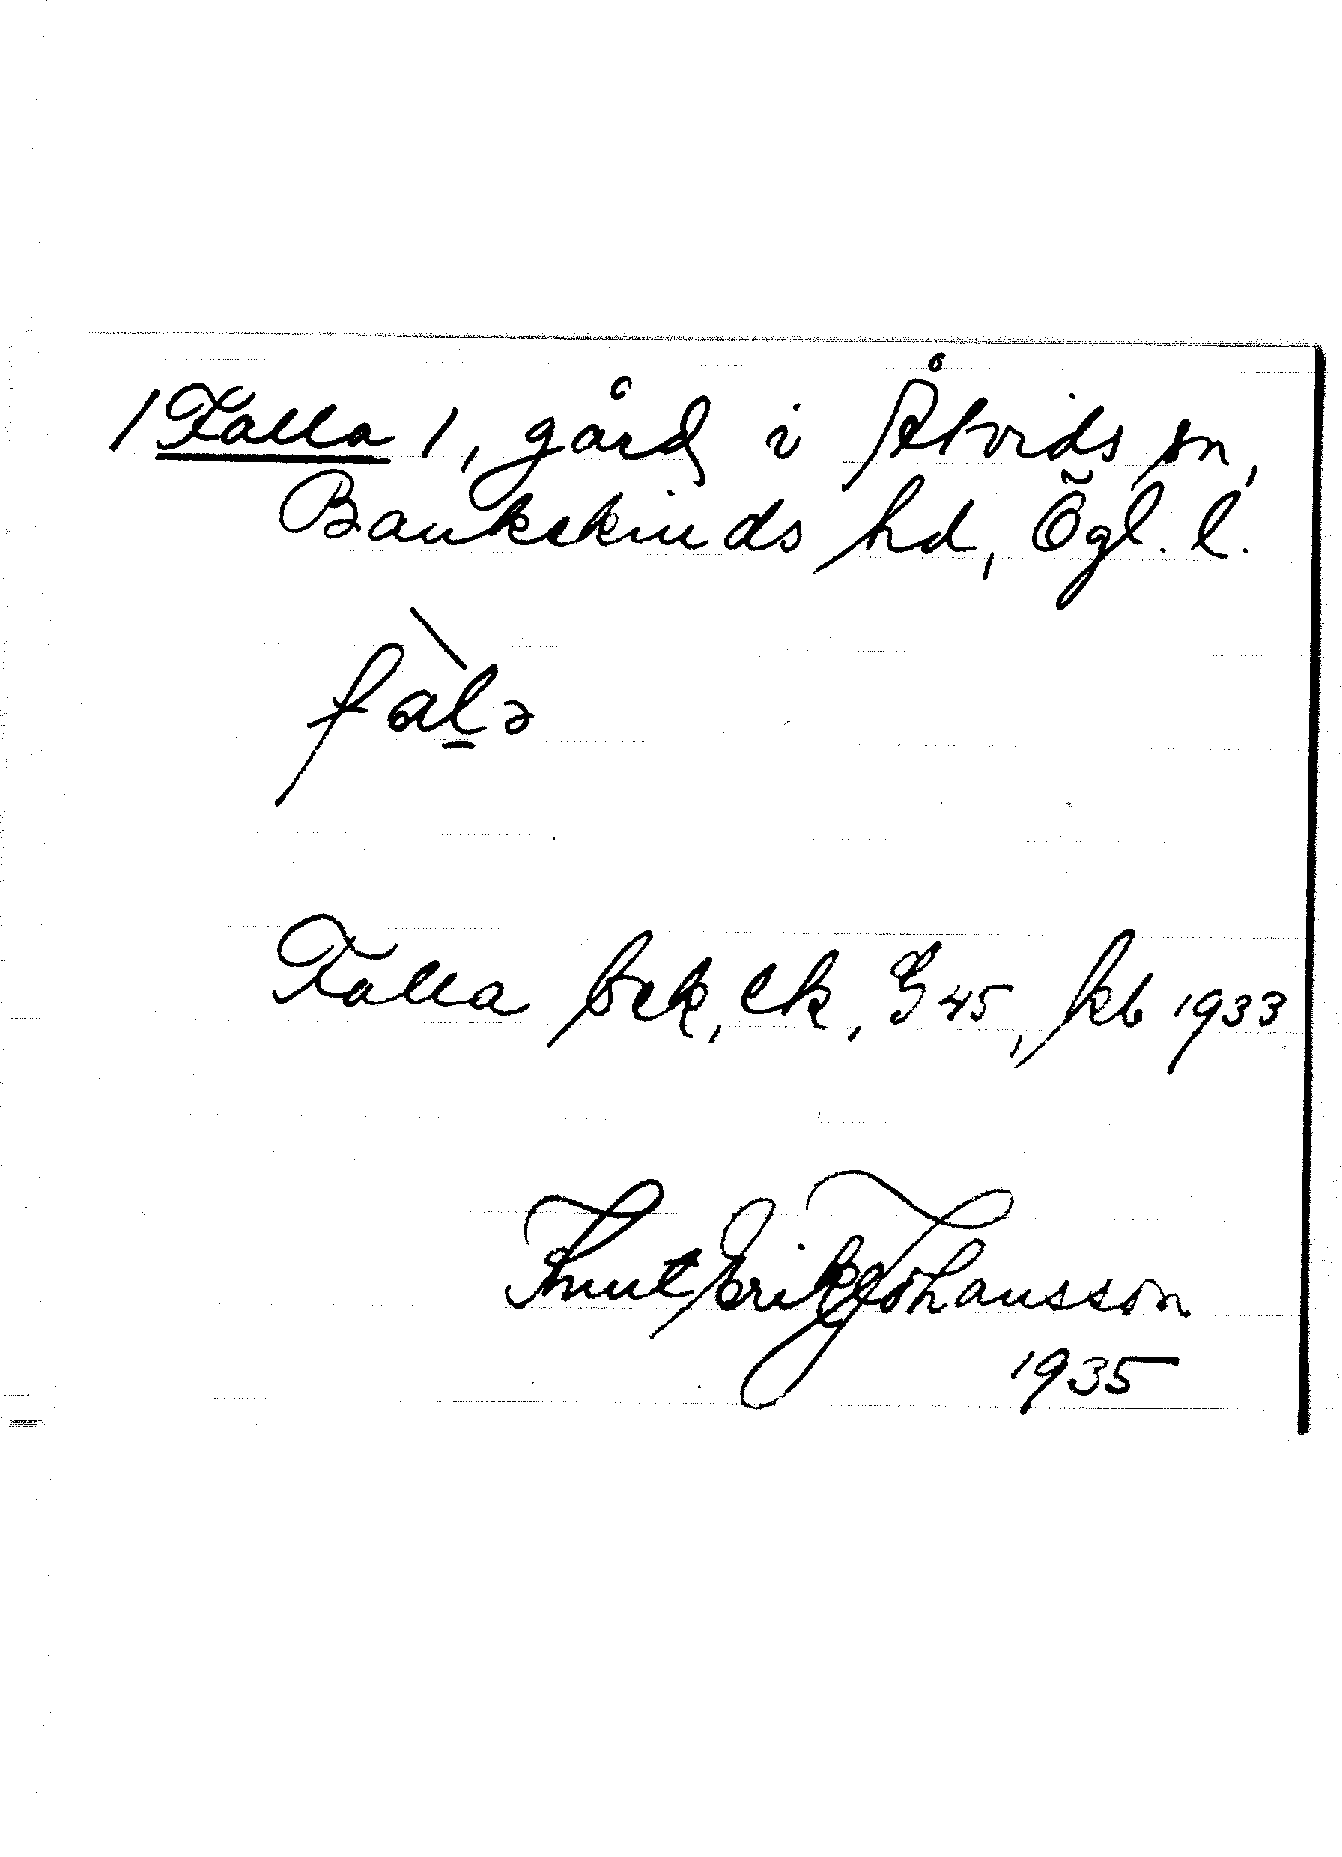 /Falla/, gård i Åtvids sn,
Bankekinds hd, Ögl. l.
fàlə
Falla Sek, ek, G45, kb 1933
Knut Erik Johansson
1935